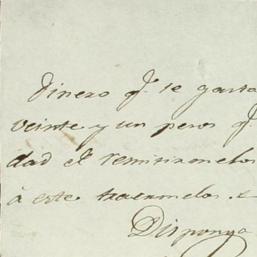 dinero q.e se gasta
veinte y un pesos q.
dad el remitirmelos
à este traermelos
Disponga